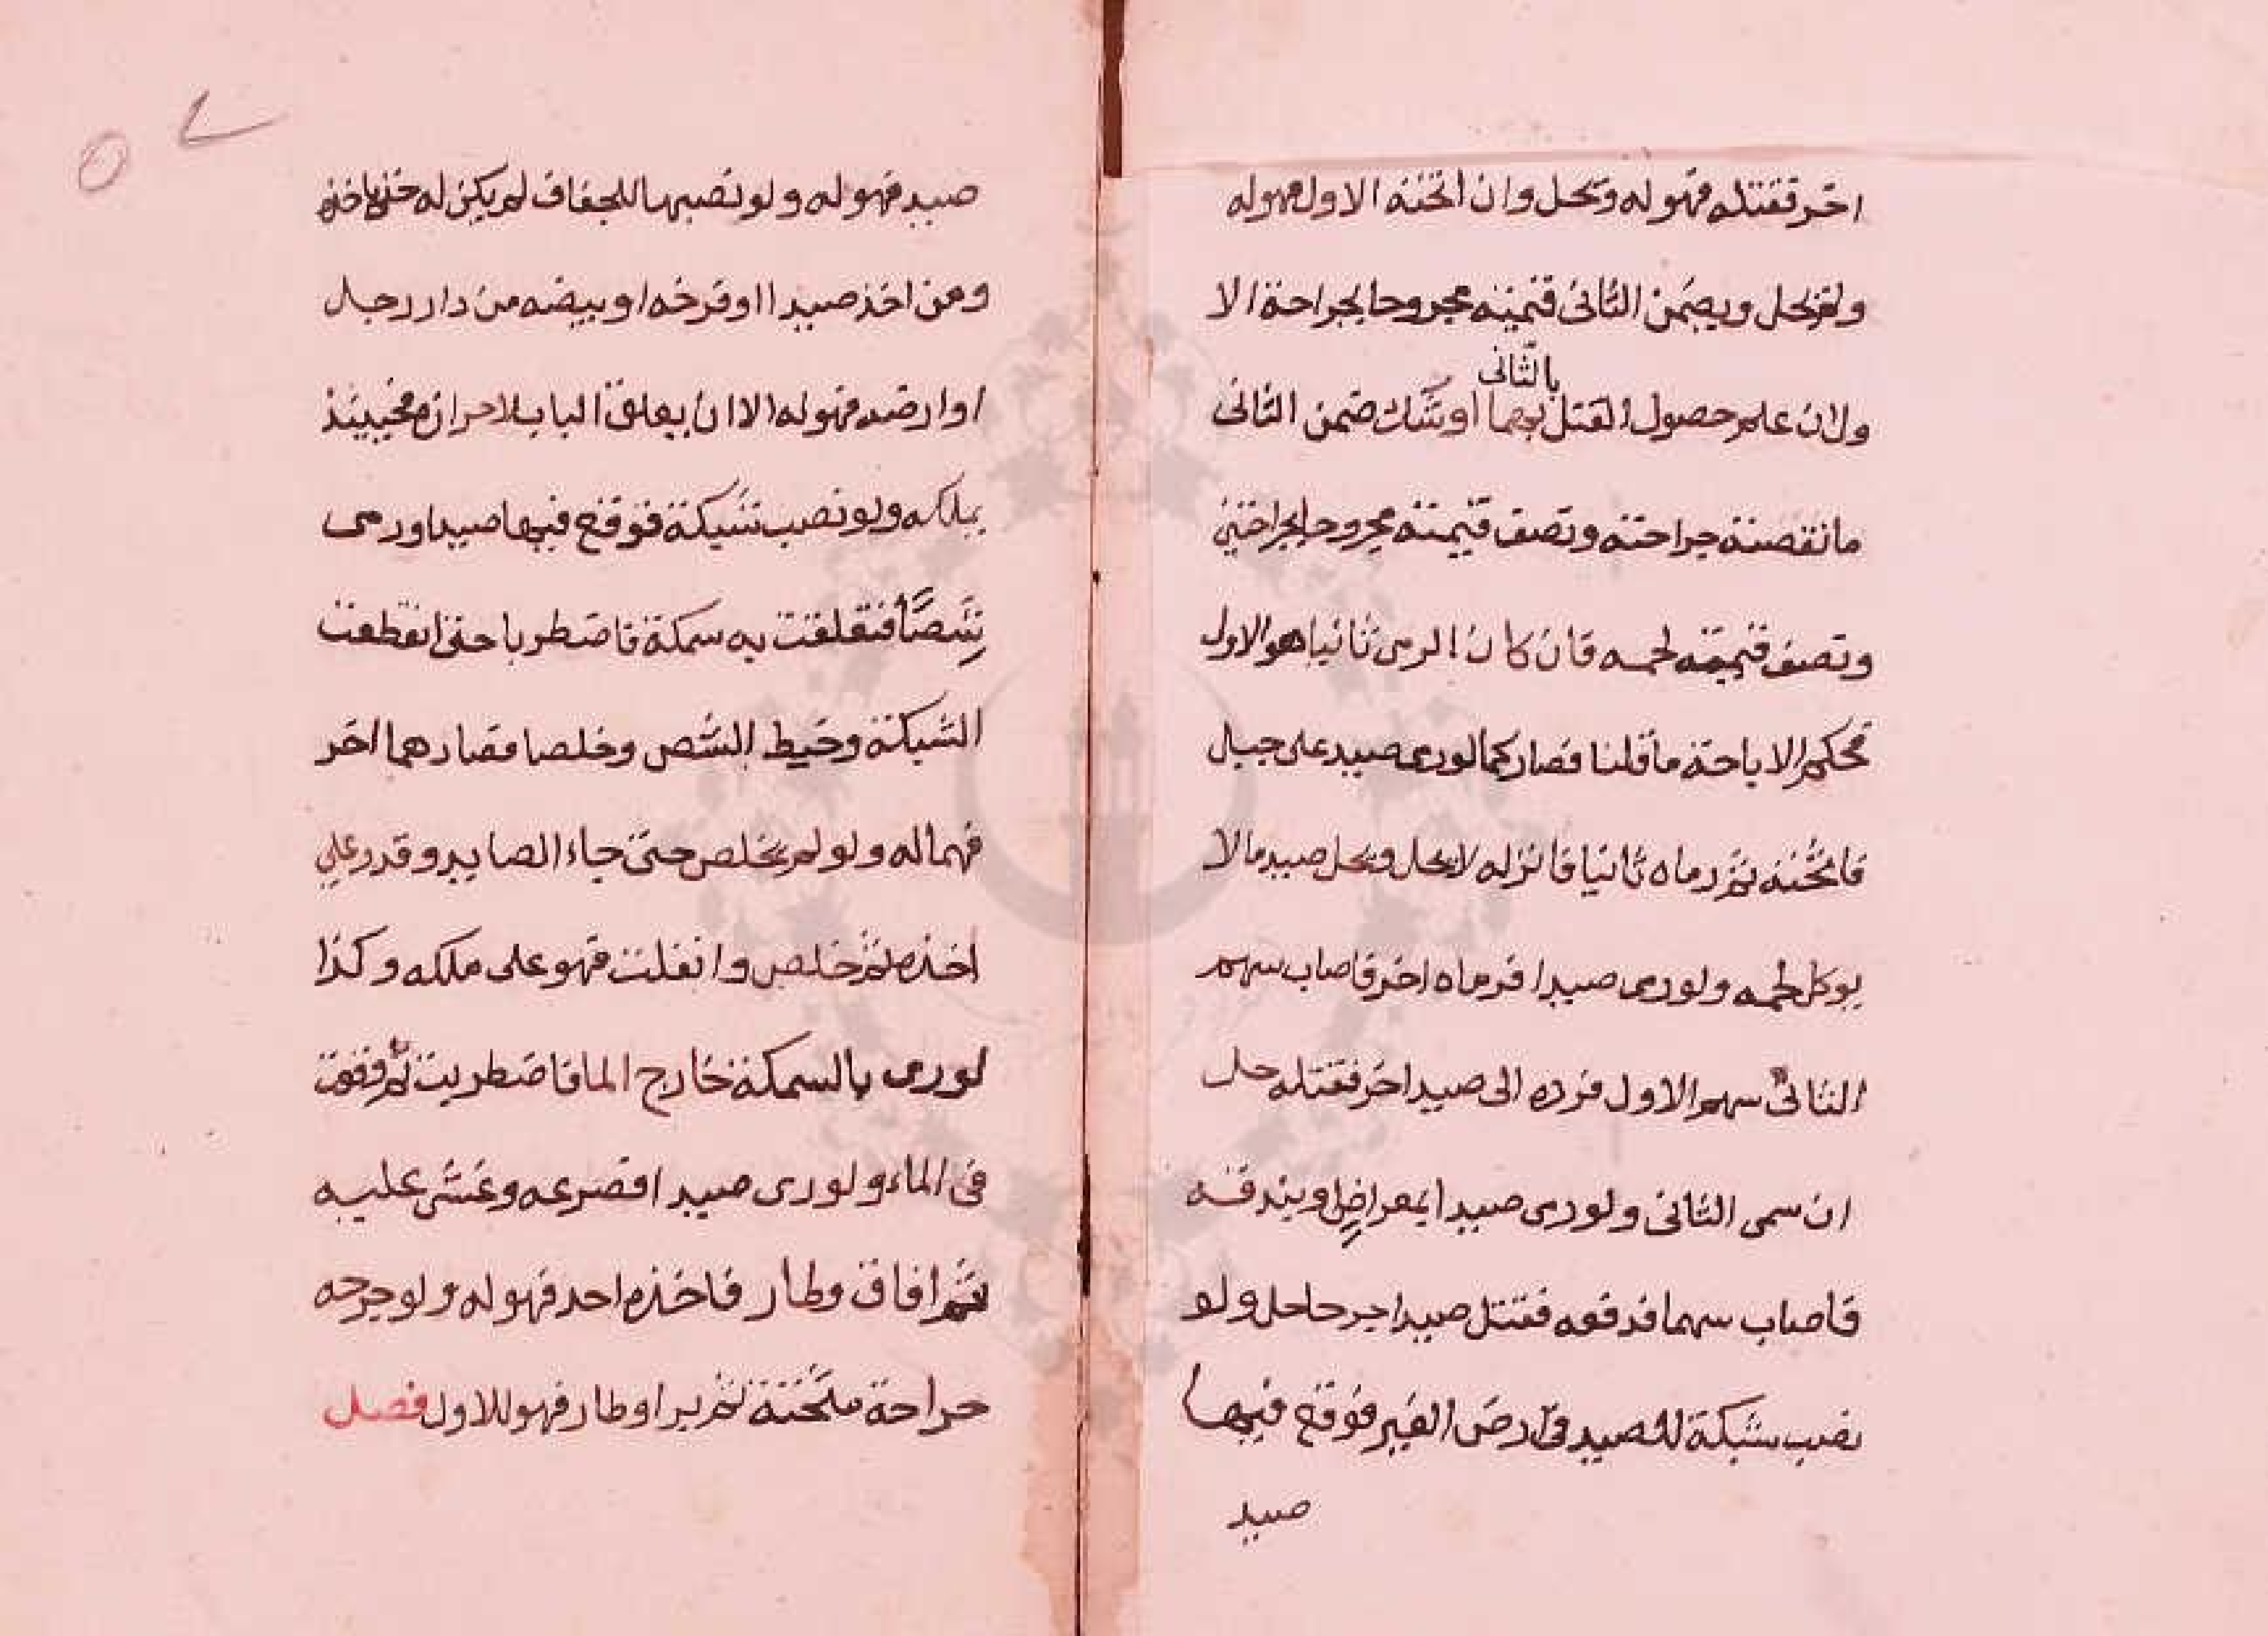 اخر فقتله فهو له ويحل وان اثخنه الاول فهو له
ولم يحل ويضمن الثاني قيمته مجروحا بجراحة الا
ول وان علم حصول القتل بهما او شك ضمن الثاني
بالثاني
ما نقصته جراحته ونصف قيمته مجروحا بجراحتين
ونصف قيمته لحمه فان كان الرمي ثانيا هو الاول
فحكم الاباحة ما قلنا فصار كما لو رمى صيد على جبل
فاثخنه ثم رماه ثانيا فانزله لا يحل ويحل صيد ما لا
يوكل لحمه ولو رمى صيدا فرماه اخر فاصاب سهم
الثاني سهم الاول فرده الى صيد اخر فقتله حل
ان سمى الثاني ولو رمى صيدا بمعراض او بندقه
فاصاب سهما فدفعه فقتل صيدا جرحا حل ولو
نصب شبكة للصيد في ارض الغير فوقع فيها
صيد
صيد فهو له ولو نصبها للجفاف لم يكن له حتى ياخذه
ومن اخذ صيدا او فرخه او بيضه من دار رجل
او ارضه فهو له الا ان يغلق الباب لاحرازه فحينئذ
يملكه ولو نصب شبكة فوقع فيها صيد او رمى
شصا فتعلقت به سمكة فاضطربا حتى انقطعت
الشبكة وخيط الشص وخلصا فصادهما اخر
فهما له ولو لم يخلص حتى جاء الصايد وقدر على
اخذه ثم خلص وانفلت فهو على ملكه وكذا
لو رمى بالسمكة خارج الما فاضطربت ثم وقعت
في الماء ولو رمى صيدا فصرعه وغشى عليه
ثم افاق وطار فاخذه احد فهو له ولو جرحه
جراحة مثخنة ثم برا وطار فهو للاول فصل